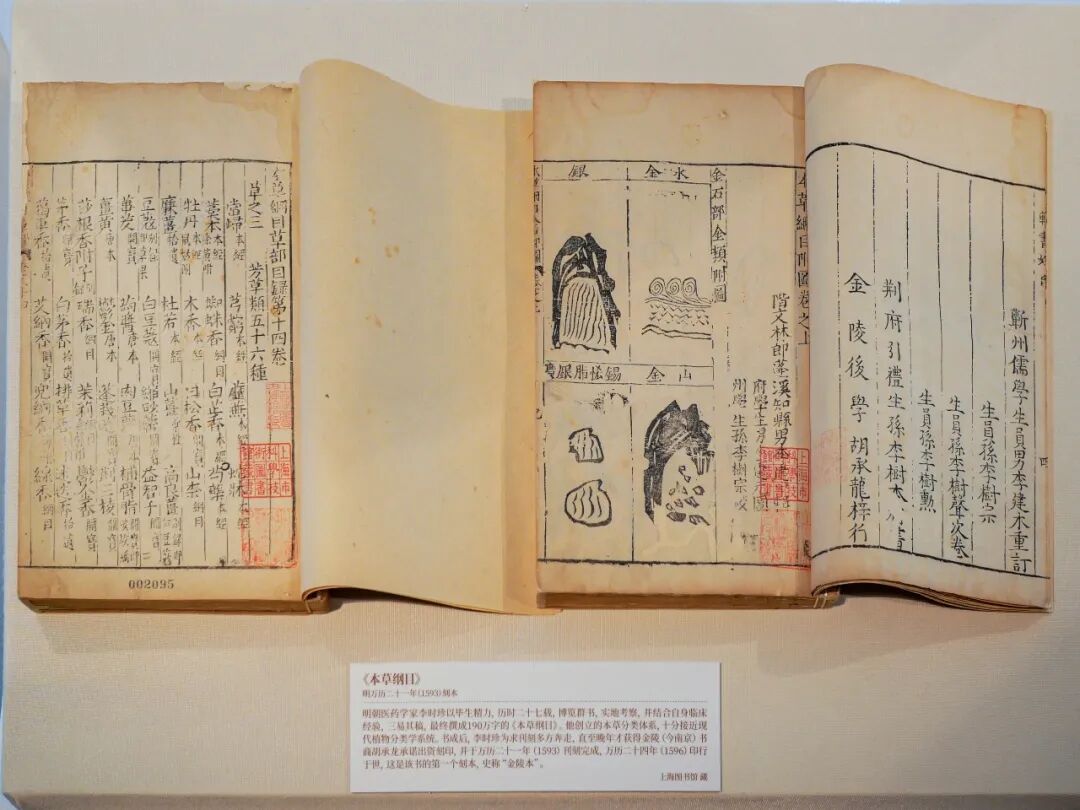 本草綱目草部目録第十四卷
草之三 芳草類五十六種
當歸本經 芎藭本經 蘼蕪本經
藁本本經 蜘蛛香綱目 白芷本經
牡丹本經 木香本經 甘松香 山柰綱目
廉薑拾遺 杜若本經 山薑 高良薑
豆蔻 白豆蔻 縮砂 益智子
蓽茇 蒟醬唐本 肉豆蔻 補骨脂
薑黃唐本 鬱金唐本 蓬莪
莎根香附子 瑞香綱目 茉莉 鬱金香
茅香 白茅香拾遺 排草香 迷迭香拾遺
藒車香拾遺 艾納香 兜納香 線香綱目
002095
蘄州儒學生員男李建木重訂
生員孫李樹宗
生員孫李樹聲次卷
生員孫李樹勲
荆府引禮生孫李樹本
金陵後學胡承龍梓行
本草綱目附圖卷之上
階文林郎蓬溪知縣男李建
州學生孫李樹宗校
金石部金類附圖
水金
銀
山金
錫恡脂銀
上海市科學技術圖書館
《本草纲目》
明万历二十一年(1593)刻本
明朝医药学家李时珍以毕生精力, 历时二十七载, 博览群书, 实地考察, 并结合自身临床
经验, 三易其稿, 最终撰成190万字的《本草纲目》。他创立的本草分类体系, 十分接近现
代植物分类学系统。书成后, 李时珍为求刊刻多方奔走, 直至晚年才获得金陵 (今南京) 书
商胡承龙承诺出资刻印, 并于万历二十一年 (1593) 刊刻完成, 万历二十四年 (1596) 印行
于世, 这是该书的第一个刻本, 史称“金陵本”。
上海图书馆 藏